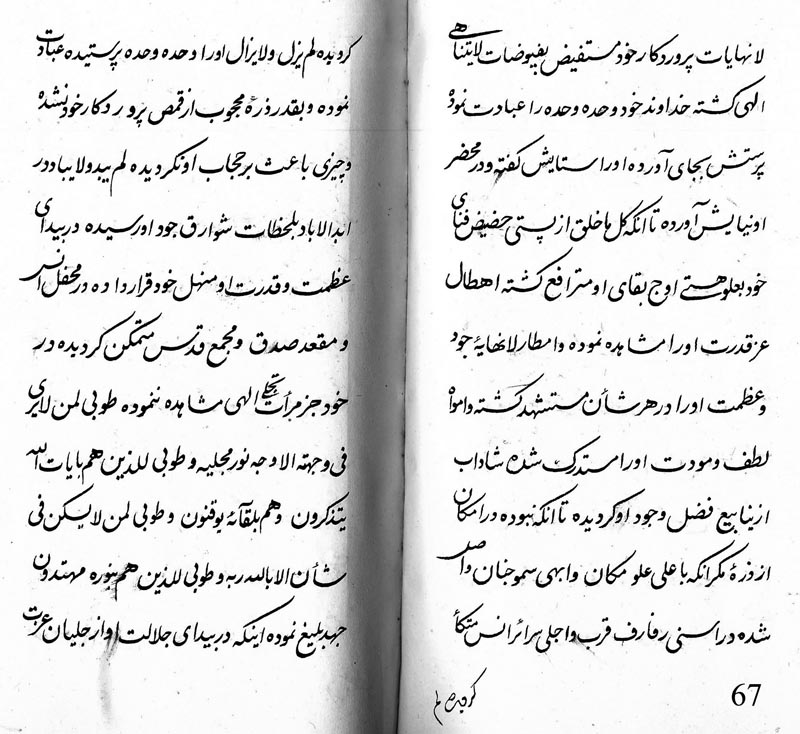 لانهایات پروردکار خود مستفیض بفیوضات لایتناهی
الهی کشته خداوند خود وحده وحده را عبادت نموده
پرستش بجای آورده اورا ستایش کفته و در محضر
او نیایش آورده تا انکه کل ما خلق از پستی حضیض فنای
خود بعلو هستی اوج بقای او مترافع کشته اهطال
عز قدرت اورا مشاهده نموده وامطار لانهایهٔ جود
وعظمت اورا در هر شأن مستشهد کشته وامواه
لطف ومودت اورا مستدرک شده شاداب
از ینابیع فضل وجود او کردیده تا انکه نبوده در امکان
از ذرهٔ مکر انکه با علی علو مکان وابهی سمو جنان واصل
شده در اسنی رفارف قرب واجلی سرائر انس متکأ
کردیده لم
67
کردیده لم یزل ولایزال اورا وحده وحده پرستیده عبادت
نموده و بقدر ذرهٔ محجوب از قمص پروردکار خود نشده
وچیزی باعث بر حجاب او نکردیده لم یبد ولا یباد در
ابد الاباد بلحظات شوارق جود اورسیده در بیدای
عظمت وقدرت او منهل خود قرار داده در محفل انس
ومقعد صدق ومجمع قدس متمکن کردیده در
خود جز مرآت تجلی الهی مشاهده ننموده طوبی لمن لایری
فی وجهته الا وجه نور مجلیه وطوبی للذین هم بایات الله
یتذکرون وهم بلقآئه یوقنون وطوبی لمن لایسکن فی
شأن الا بالله ربه وطوبی للذین هم بنوره مهتدون
جهد بلیغ نموده اینکه در بیدای جلالت او از جلیان عزت